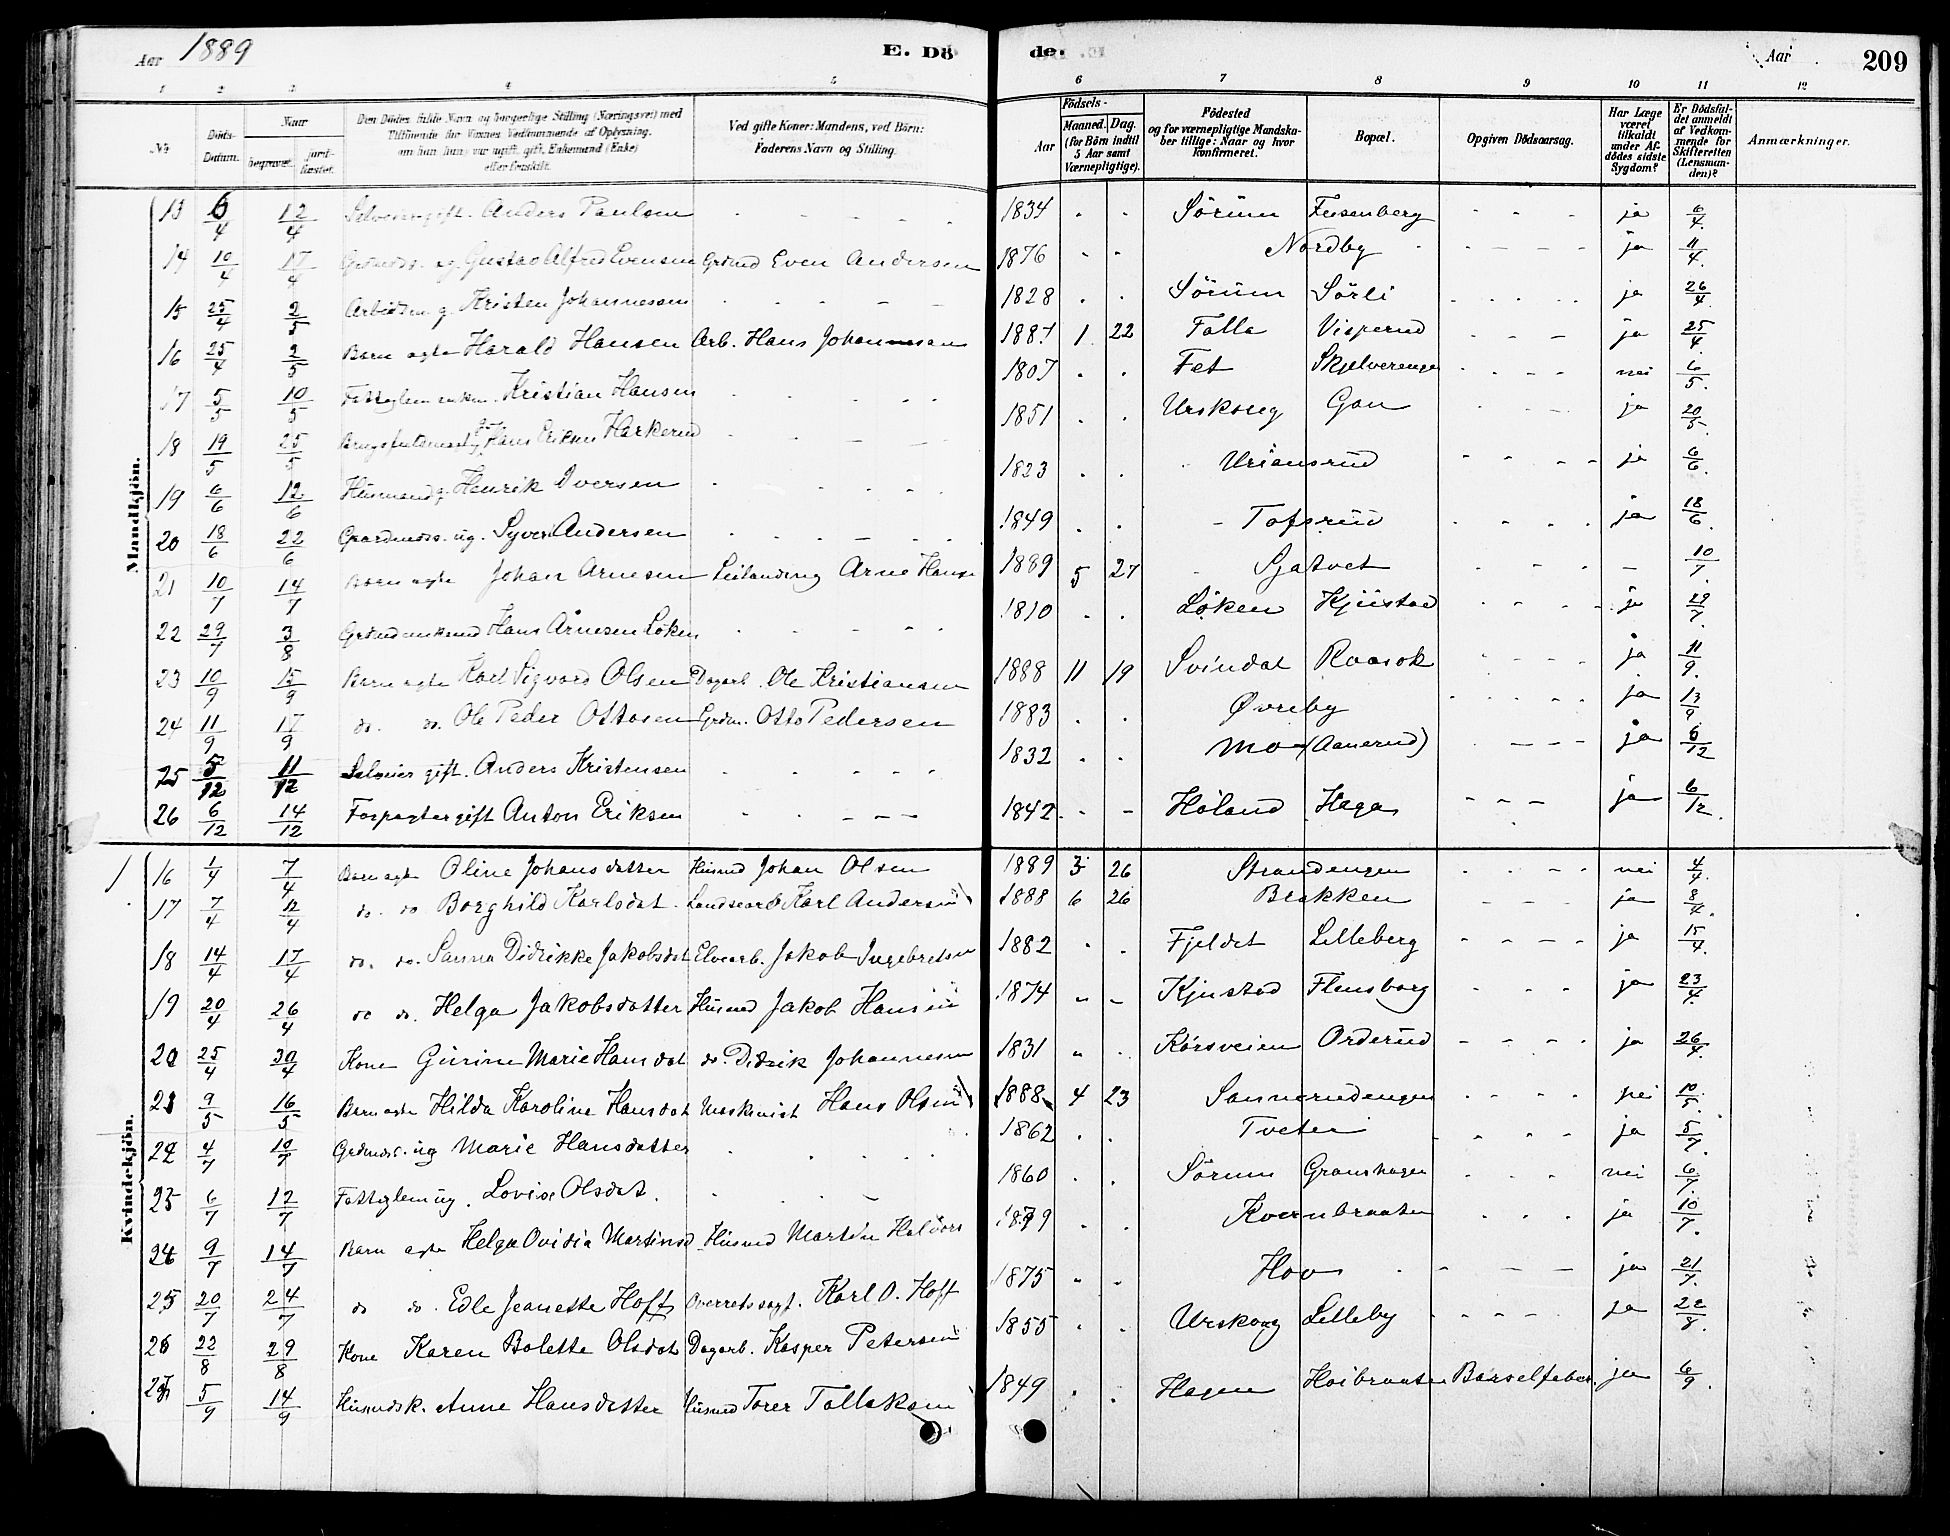 Aar 1889
E. Dö
de.
Aar
209
1 2 3 4 5 6 7 8 9 10 11 12
No
Döds-Datum.
Naar
begravet.
jord-fæstet.
Den Dödes fulde Navn og borgerlige Stilling (Næringsvei) med Tilföiende for Voxnes Vedkommende af Oplysning, om han (hun) var ugift, gift, Enkemand (Enke) eller fraskilt.
Ved gifte Koner: Mandens, ved Börn: Faderens Navn og Stilling.
Födsels-
Aar
Maaned. Dag.
(for Börn indtil 5 Aar samt Værnepligtige).
Födested og for værnepligtige Mandska-ber tillige: Naar og hvor konfirmeret.
Bopæl.
Opgiven Dödsaarsag.
Har Læge været tilkaldt under Af-dödes sidste Sygdom?
Er Dödsfal-det anmeldt af Vedkom-mende for Skifteretten (Lensman-den)?
Anmærkninger.
Mandkjön.
13 6/4 12/4 Selveier gift. Anders Paulsen 1834 Sörum Fusenberg ja 6/4
14 10/4 17/4 Grdmds. ug. Gustav Alfred Evensen Grdmd Even Andersen 1876 Nordby ja 11/4
15 25/4 2/5 Arbeidsm g. Kristen Johannessen 1828 Sörum Sörli ja 26/4
16 25/4 2/5 Barn agte Harald Hansen Arb. Hans Johannesen 1887 1 22 Falla Visperud ja 25/4
17 5/5 10/5 Fattiglem enkem. Kristian Hansen 1807 Fet Skjelverengen nei 6/5
18 19/5 25/5 Hans Eriksen Harkerud 1851 Urskoug Gan ja 20/5
19 6/6 12/6 Husmand g. Henrik Iversen 1823 Uriansrud ja 6/6
20 18/6 22/6 Gaardmds. ug. Syver Andersen 1849 Tofsrud ja 18/6
21 10/7 14/7 Barn agte Johan Arnesen Leilanding Arne Hanse 1889 5 27 Sjatvet 10/7
22 29/7 3/8 Grdmd enkemd Hans Arnesen Löken 1810 Löken Kjustad ja 29/7
23 10/9 15/9 Barn agte Karl Sigvard Olsen Dagarb. Ole Kristiansen 1888 11 19 Svindal Raasok ja 11/9
24 11/9 17/9 do. do. Ole Peder Ottosen Grdm. Otto Pedersen 1883 Øvreby ja 13/9
25 5/12 11/12 Selveier gift. Anders Kristensen 1832 Mo (Aanerud) ja 6/12
26 6/12 14/12 Forpagter gift Anton Eriksen 1842 Höland Haga ja 6/12
Kvindekjön.
16 1/4 7/4 Barn agte Oline Johansdatter Husmd Johan Olsen 1889 3 26 Strandengen nei 4/4
17 7/4 12/4 do. do Borghild Karlsdat. Karl Andersen 1888 6 26 Brakken ja 8/4
18 14/4 17/4 do. do. Sanna Didrikke Jakobsdat Elvearb. Jakob Ingebretsen 1882 Fjeldet Lilleberg ja 15/4
19 20/4 26/4 do do. Helga Jakobsdatter Husmd Jakob Hansen 1874 Kjustad Flensborg ja 23/4
20 25/4 30/4 Kone Gurine Marie Hansdat do. Didrik Johannesen 1831 Korsveien Orderud ja 26/4
21 9/5 16/5 Barn agte Hilda Karoline Hansdat Maskinist Hans Olsen 1888 4 23 Sannerudengen nei 10/5
22 4/7 10/7 Grdmds. ug Marie Hansdatter 1862 Tveter ja 5/7
23 6/7 12/7 Fattiglem ug. Lovise Olsdat. 1860 Sörum Granshagen nei 6/7
24 9/7 14/7 Barn agte Helga Ovidia Martinsd Husmd Martin Halvors 1879 Kvernbraaten ja 10/7
25 20/7 24/7 do do. Edle Jeanette Hoff Overretssagf. Karl O. Hoff 1875 Hov ja 21/7
26 22/8 29/8 Kone Karen Bolette Olsdat Dagarb. Kasper Petersen 1855 Urskoug Lilleby ja 22/8
27 5/9 14/9 Husmdsk. Anne Hansdatter Husmd Torer Tollaksen 1849 Hagen Høibraaten Barselfeber. ja 6/9